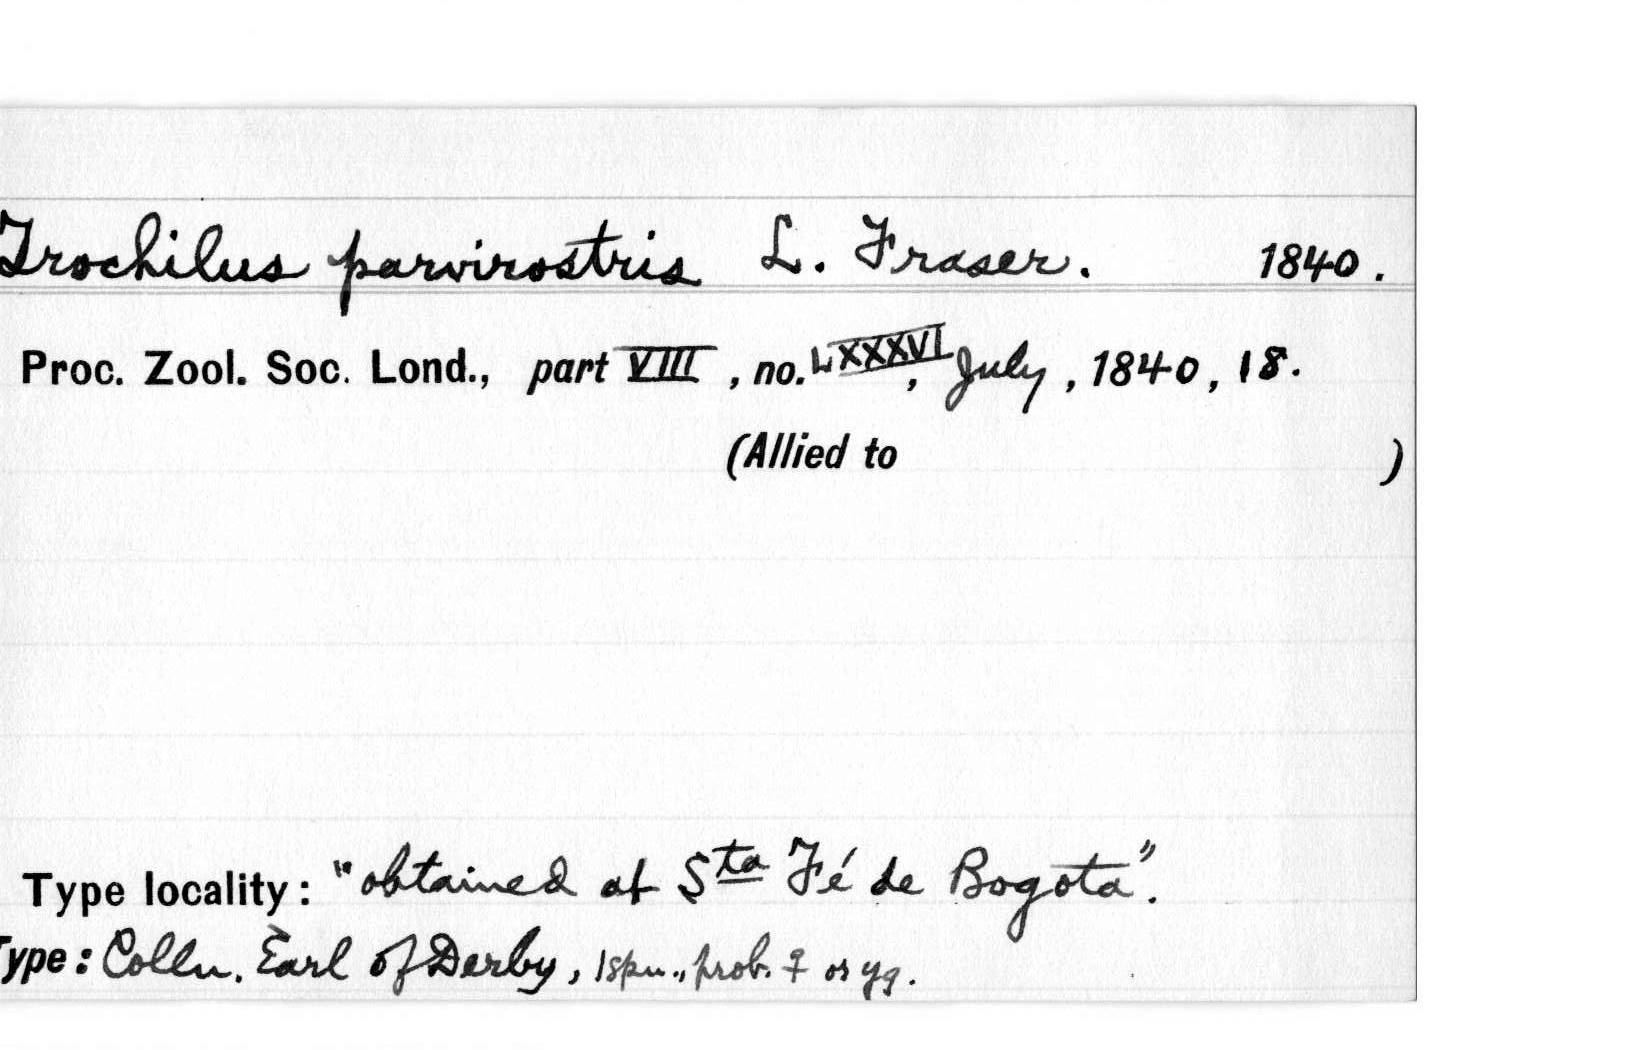 Trochilus parvirostris L. Fraser. 1840.
Proc. Zool. Soc. Lond., part VIII, no. LXXXVI, July, 1840, 18.
(Allied to )
Type locality: "obtained at Sta Fé de Bogota".
Type: Colln. Earl of Derby, 1 spn., prob. ♀ or yg.